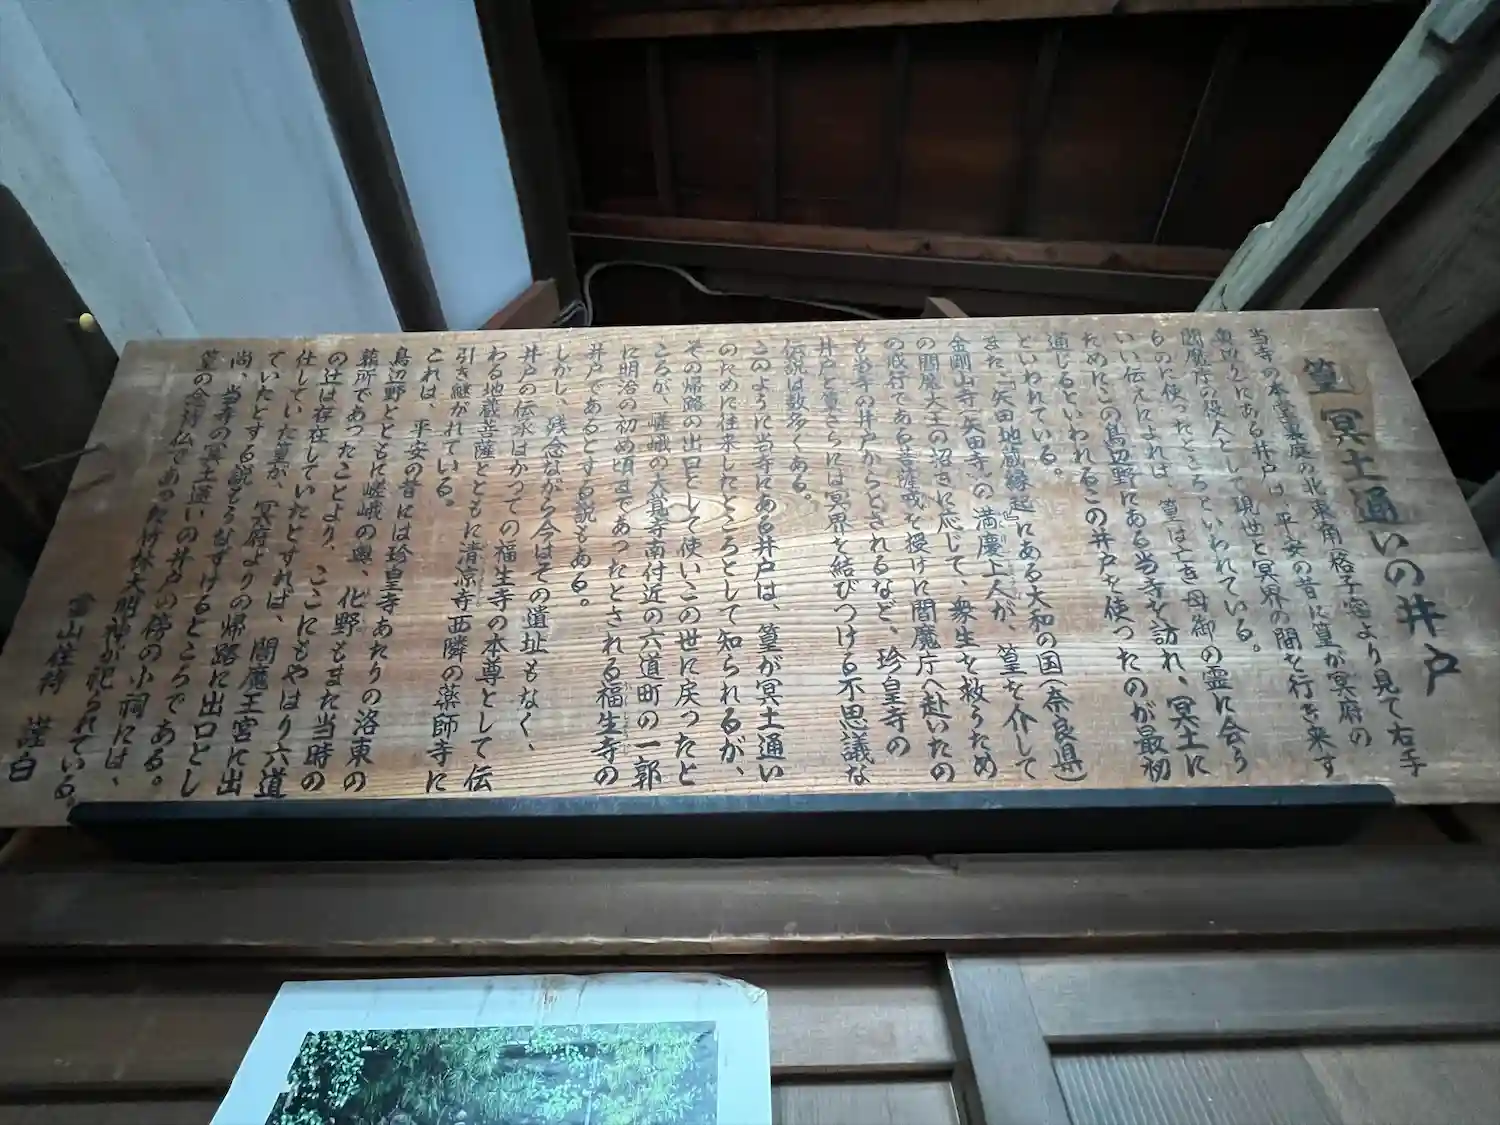 篁 冥土通いの井戸
当寺の本堂裏庭の北東角格子窓より見て右手
奥辺りにある井戸は、平安の昔に篁が冥府の
閻魔庁の役人として現世と冥界の間を行き来す
ものに使ったところといわれている。
いい伝えによれば、篁は亡き母御の霊に会う
ためにこの鳥辺野にある当寺を訪れ、冥土に
通じるといわれるこの井戸を使ったのが最初
といわれている。
また『矢田地蔵縁起』にある大和の国(奈良県)
金剛山寺(矢田寺)の満慶上人が、篁を介して
の閻魔大王の招きに応じて、衆生を救うため
の戒行である菩薩戒を授けに閻魔庁へ赴いたの
も当寺の井戸からとされるなど、珍皇寺の
井戸と篁さらには冥界を結びつける不思議な
伝説は数多くある。
このように当寺にある井戸は、篁が冥土通い
のために往来したところとして知られるが、
その帰路の出口として使いこの世に戻ったと
ころが、嵯峨の大覚寺南付近の六道町の一郭
に明治の初め頃まであったとされる福生寺の
井戸であるとする説もある。
しかし、残念ながら今はその遺址もなく、
井戸の伝承はかつての福生寺の本尊として伝
わる地蔵菩薩とともに清凉寺西隣の薬師寺に
引き継がれている。
これは、平安の昔には珍皇寺あたりの洛東の
鳥辺野とともに嵯峨の奥、化野もまた当時の
墓所であったことより、ここにもやはり六道
の辻は存在していたとすれば、閻魔王宮に出
仕していた篁が、冥府よりの帰路に出口とし
ていたとする説もうなずけるところである。
尚、当寺の冥土通いの井戸の傍の小祠には、
篁の念持仏であった竹林大明神が祀られている。
当山住持 謹白